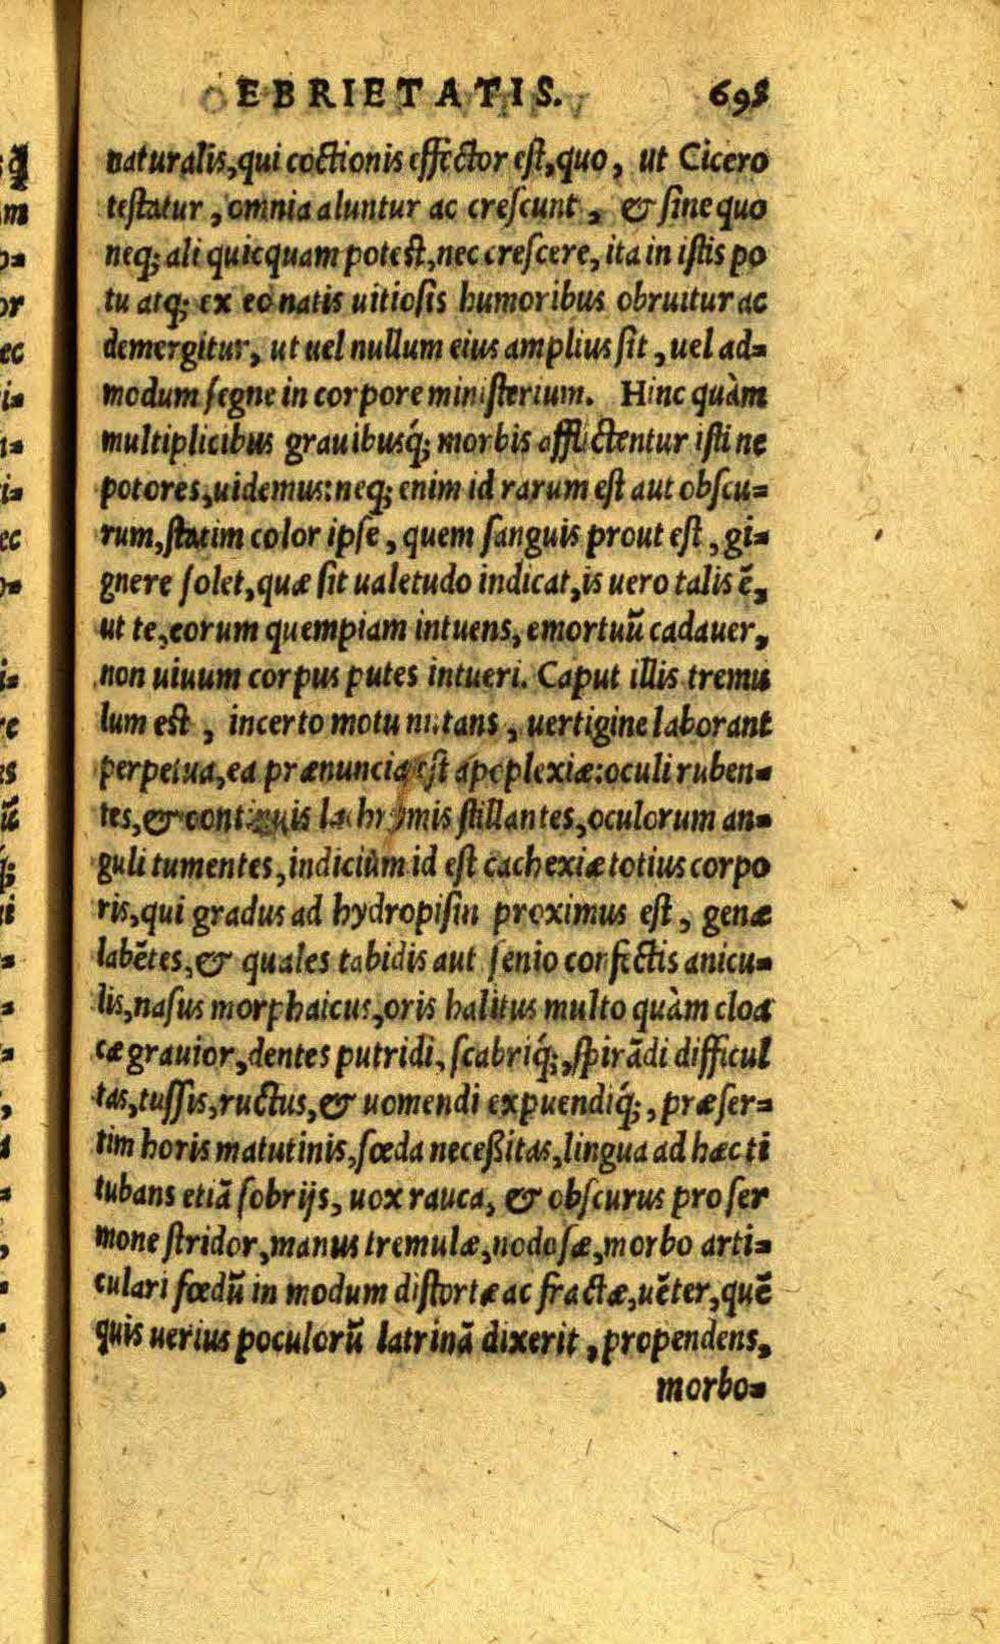 EBRIETATIS. 695
naturalis,qui coctionis effector est,quo, ut Cicero
testatur, omnia aluntur ac crescunt, & sine quo
neq; ali quicquam potest,nec crescere, ita in istis po
tu atq; ex eo natis uitiosis humoribus obruitur ac
demergitur, ut uel nullum eius amplius sit, uel ad=
modum segne in corpore ministerium. Hinc quàm
multiplicibus grauibusq́; morbis afflictentur isti ne
potores,uidemus: neq; enim id rarum est aut obscu=
rum,statim color ipse, quem sanguis prout est, gi=
gnere solet,quæ sit ualetudo indicat,is uero talis ē,
ut te,eorum quempiam intuens, emortuū cadauer,
non uiuum corpus putes intueri. Caput illis tremu
lum est, incerto motu nutans, uertigine laborant
perpetua,ea prænuncia est apoplexiæ: oculi ruben=
tes,& continuis lachrymis stillantes,oculorum an=
guli tumentes, indicium id est cachexiæ totius corpo
ris,qui gradus ad hydropisin proximus est, genæ
labētes,& quales tabidis aut senio confectis anicu=
lis,nasus morphaicus,oris halitus multo quàm cloa
cæ grauior,dentes putridi, scabriq́;,spirādi difficul
tas,tussis,ructus,& uomendi expuendiq́;, præser=
tim horis matutinis,fœda neceßitas,lingua ad hæc ti
tubans etiā sobrijs, uox rauca, & obscurus pro ser
mone stridor,manus tremulæ,nodosæ,morbo arti=
culari fœdū in modum distortæ ac fractæ,uēter,quē
quis uerius poculorū latrinā dixerit, propendens,
morbo=